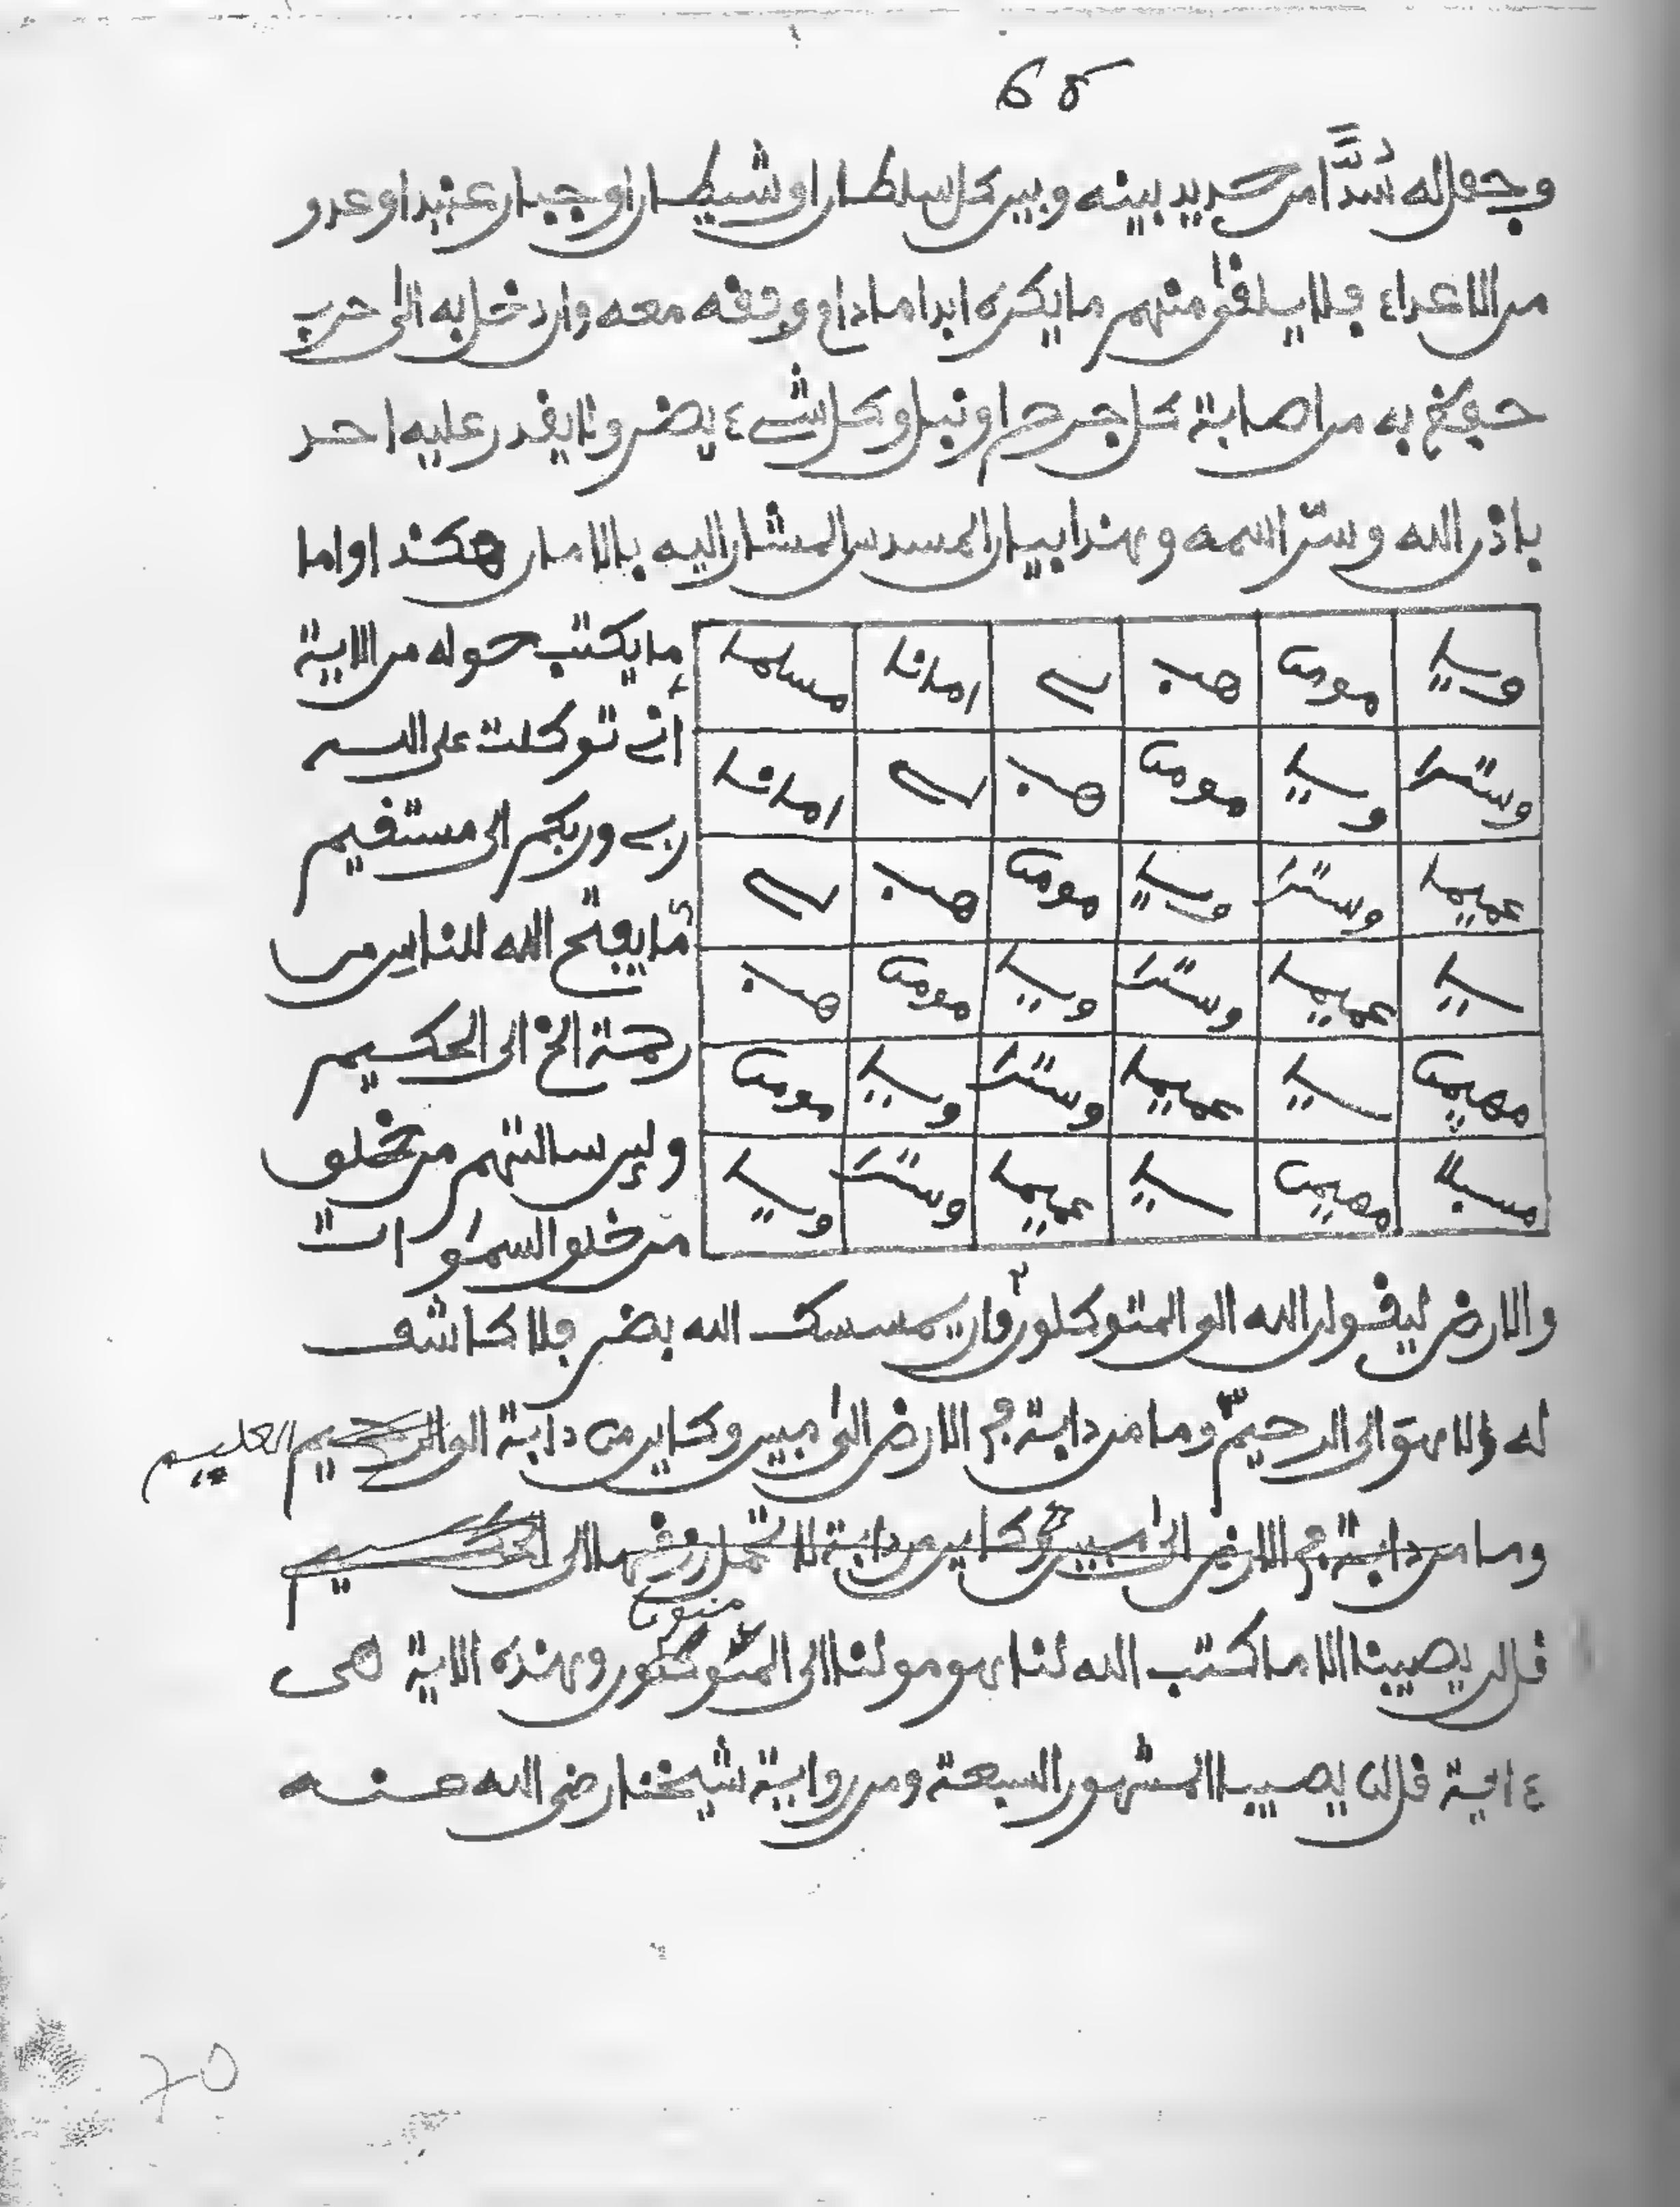 65
وجعل له سُدًّا من حديد بينه وبين كل سلطان او شيطان او جبار عنيد او عدو
من الاعداء فلا يلقى منهم ما يكره ابدا ما دام وفقه معه وان دخل به الى حرب
حفظ به من اصابة كل جرح او نبل وكل شيء يضر ولا يقدر عليه احد
باذن الله وستر اسمه وهذا بيان المسدس المشار اليه بالامان هكذا واما
وسيا مومنا هب لي امانا مسلما
وسترا وسيا مومنا هب لي امانا
عميما وسترا وسيا مومنا هب لي
سيا عميما وسترا وسيا مومنا هب
مهيمنا سيا عميما وسترا وسيا مومنا
مسبلا مهيمنا سيا عميما وسترا وسيا
ما يكتب حوله من الاية
إني توكلت على الله
ربي وربكم الى مستقيم
ما يفتح الله للناس من
رحمة الخ الى الحكيم
ولين سالتهم من خلق
من خلق السموات
والارض ليقولن الله الى المتوكلون ٢ وان يمسسك الله بضر فلا كاشف
له الا هو الى الرحيم ٣ وما من دابة في الارض الى مبين وكاين من دابة الى الرحيم العليم
وما من دابة في الارض الى مبين وكاين من دابة لا تحمل رزقها الى الحكيم
قل لن يصيبنا الا ما كتب الله لنا هو مولنا الى المتوكلون وهذه الاية هي
ء اية قل لن يصيبنا المشهور السبعة ومن رواية شيخنا رضي الله عنه
70